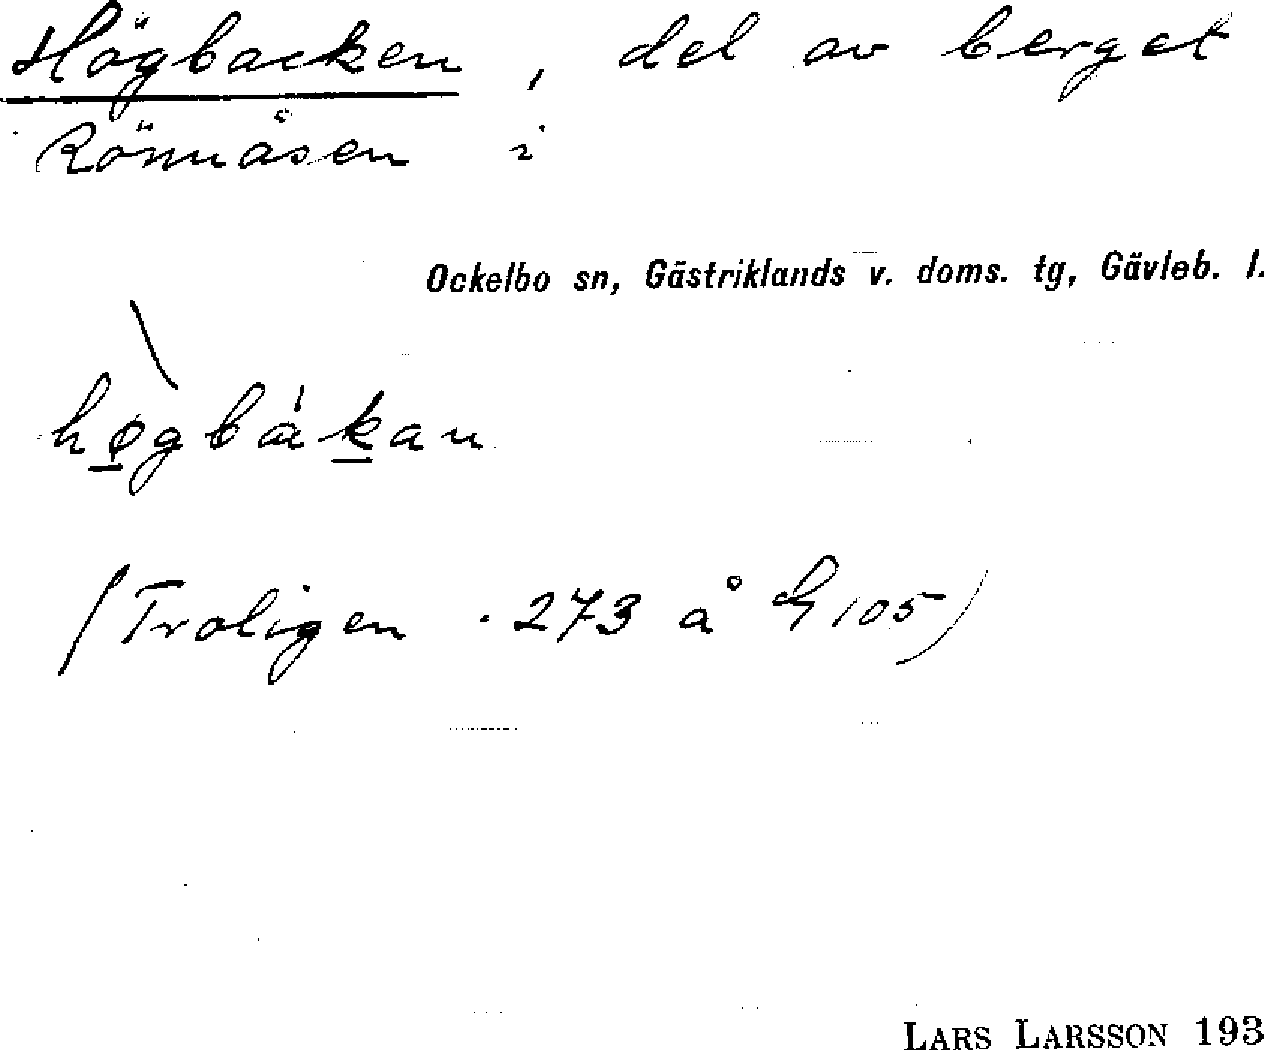 Högbacken, del av berget
Rönnåsen i
Ockelbo sn, Gästriklands v. doms. tg, Gävleb. l.
hø̲gbák̲an
(Troligen . 273 å G 105)
LARS LARSSON 193